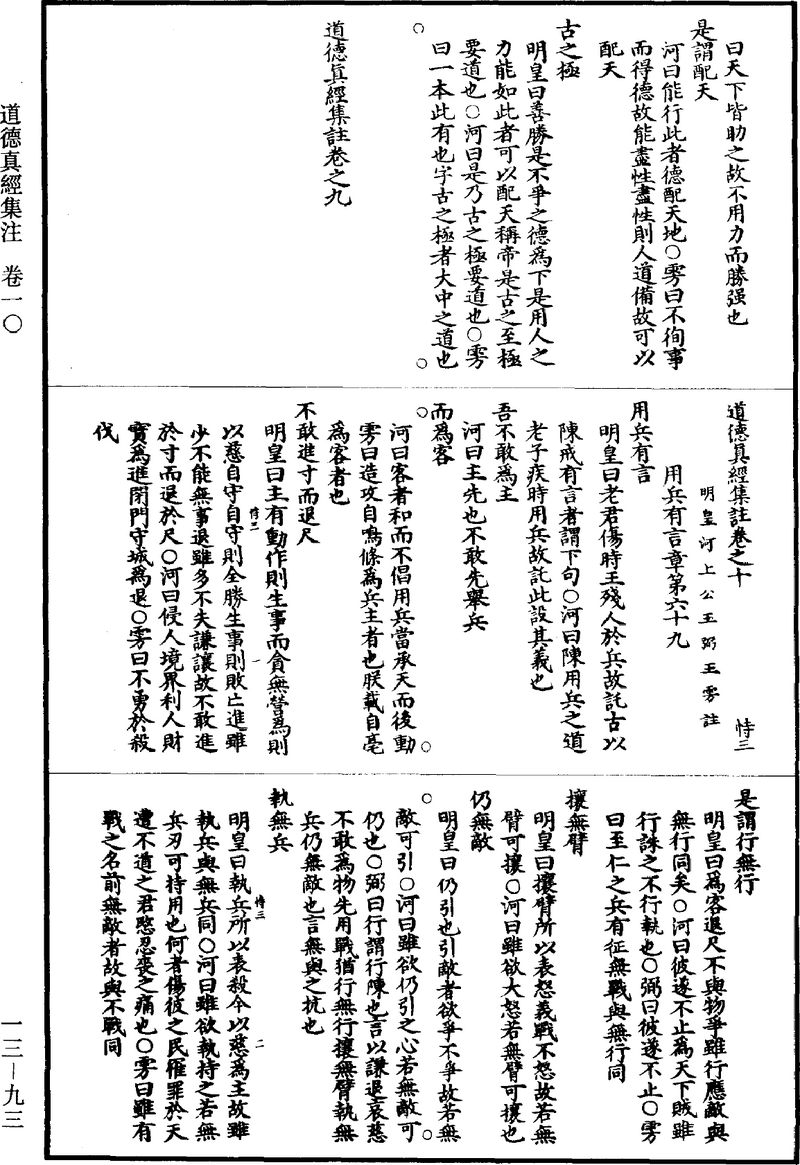 道德真經集注　卷一〇
曰天下皆助之故不用力而勝强也
是謂配天
河曰能行此者德配天地○雱曰不徇事
而得德故能盡性盡性則人道備故可以
配天
古之極
明皇曰善勝是不爭之德爲下是用人之
力能如此者可以配天稱帝是古之至極
要道也○河曰是乃古之極要道也○雱
曰一本此有也字古之極者大中之道也
道德眞經集註卷之九
道德眞經集註卷之十　恃三
明皇河上公王弼王雱註
用兵有言章第六十九
用兵有言
明皇曰老君傷時王殘人於兵故託古以
陳戒有言者謂下句○河曰陳用兵之道
老子疾時用兵故託此設其義也
吾不敢爲主
河曰主先也不敢先舉兵
而爲客
河曰客者和而不倡用兵當承天而後動
雱曰造攻自鳴條爲兵主者也朕載自亳
爲客者也
不敢進寸而退尺
明皇曰主有動作則生事而貪無營爲則
以慈自守自守則全勝生事則敗亡進雖
少不能無事退雖多不失謙讓故不敢進
於寸而退於尺○河曰侵人境界利人財
寳爲進閉門守城爲退○雱曰不勇於殺
伐
是謂行無行
明皇曰爲客退尺不與物爭雖行應敵與
無行同矣○河曰彼遂不止爲天下賊雖
行誅之不行執也○弼曰彼遂不止○雱
曰至仁之兵有征無戰與無行同
攘無臂
明皇曰攘臂所以表怒義戰不怒故若無
臂可攘○河曰雖欲大怒若無臂可攘也
仍無敵
明皇曰仍引也引敵者欲爭不爭故若無
敵可引○河曰雖欲仍引之心若無敵可
仍也○弼曰行謂行陳也言以謙退哀慈
不敢爲物先用戰猶行無行攘無臂執無
兵仍無敵也言無與之抗也
執無兵
明皇曰執兵所以表殺今以慈爲主故雖
執兵與無兵同○河曰雖欲執持之若無
兵刃可持用也何者傷彼之民罹罪於天
遭不道之君愍忍喪之痛也○雱曰雖有
戰之名前無敵者故與不戰同
一三—九三